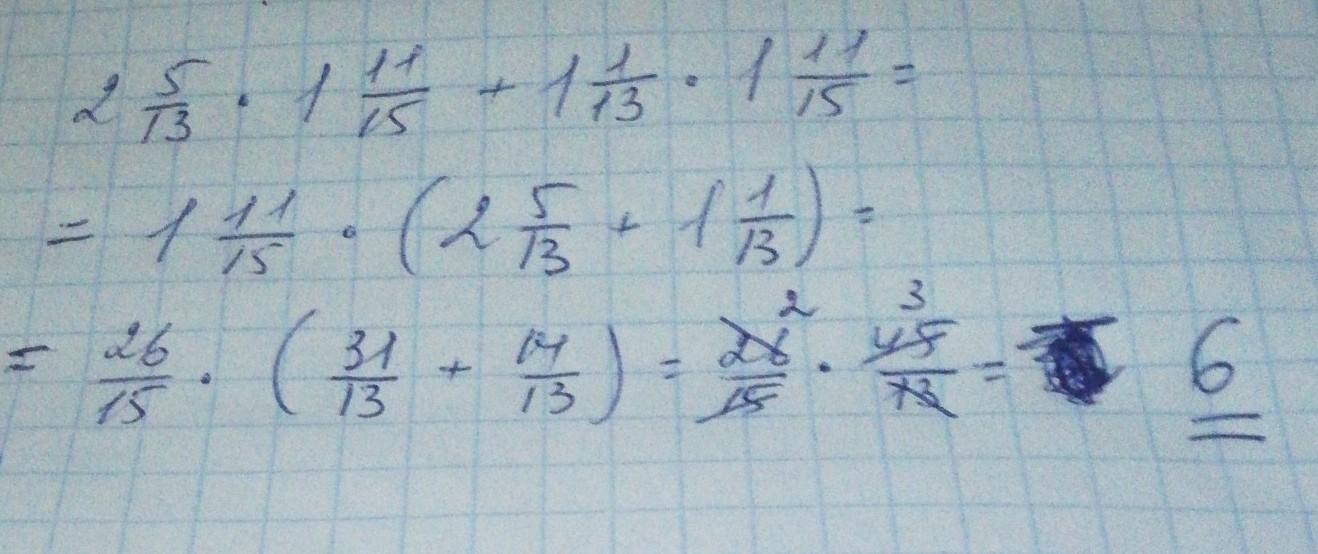 2 5/13 · 1 11/15 + 1 1/13 · 1 11/15 =
= 1 11/15 · (2 5/13 + 1 1/13) =
= 26/15 · (31/13 + 14/13) = 26/15 2 · 45/13 3 = 6